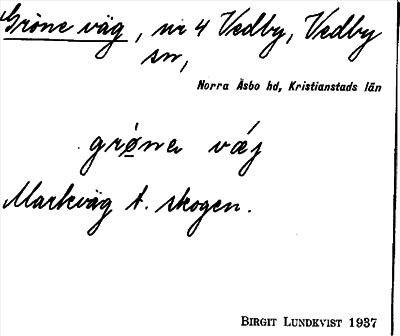 Gröne väg, nr 4 Vedby, Vedby
sn,
Norra Åsbo hd, Kristianstads län
grø̲nə væj
Markväg t. skogen.
BIRGIT LUNDKVIST 1937